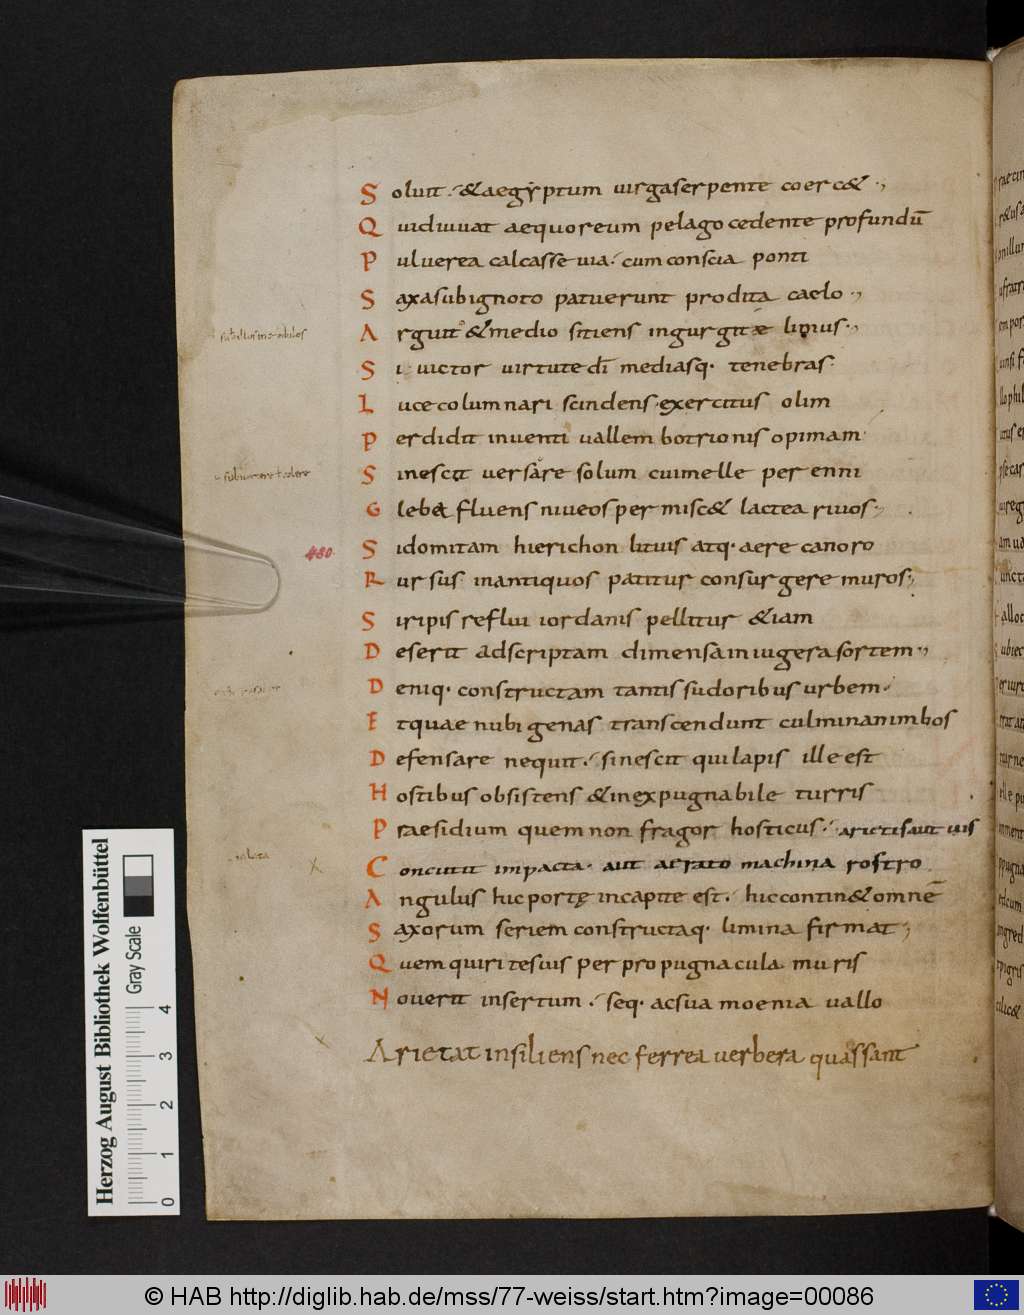 Soluit. & aegyptum uirga serpente coerc&
Quid iuuat aequoreum pelago cedente profundū
Puluerea calcasse uia. cum conscia ponti
Saxa sub ignoto patuerunt prodita caelo
Arguit & medio sitiens in gurgite lipius
Si uictor uirtute dī mediasq. tenebras
Luce columnari scindens exercitus olim
Perdidit inuenti uallem botrionis opimam
Si nescit uersare solum cui melle perenni
Gleba fluens niueos permisc& lactea riuos
480
Si domitam hierichon lituis atq. aere canoro
Rursus in antiquos patitur consurgere muros
Si ripis reflui iordanis pellitur & iam
Deserit adscriptam dimensa in iugera sortem
Deniq. constructam tantis sudoribus urbem
Et quae nubigenas transcendunt culmina nimbos
Defensare nequit. si nescit qui lapis ille est
Hostibus obsistens & inexpugnabile turris
Praesidium quem non fragor hosticus. arietis aut uis
Concutit impacta. aut aerato machina rostro
Angulus hic portę in capite est. hic contin& omnē
Saxorum seriem constructaq. limina firmat
Quem quiri tesuis per propugnacula muris
Nouerit insertum. seq. ac sua moenia uallo
Arietat insiliens nec ferrea uerbera quassant
Herzog August Bibliothek Wolfenbüttel
Gray Scale
0 1 2 3 4
© HAB http://diglib.hab.de/mss/77-weiss/start.htm?image=00086